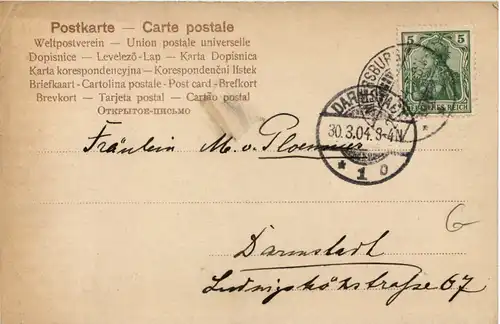 Postkarte — Carte postale
Weltpostverein — Union postale universelle
Dopisnice — Levelező-Lap — Karta Dopisnica
Karta korespondencyjna — Korespondenční lístek
Briefkaart - Cartolina postale - Post card - Brefkort
Brevkort — Tarjeta postal — Cartão postal
Открытое-письмо
5 5
DEUTSCHES REICH
DARMSTADT
30.3.04.3-4N.
* 1 o
Fräulein M. v. Ploennies
G
Darmstadt
Ludwigshöhstraße 67